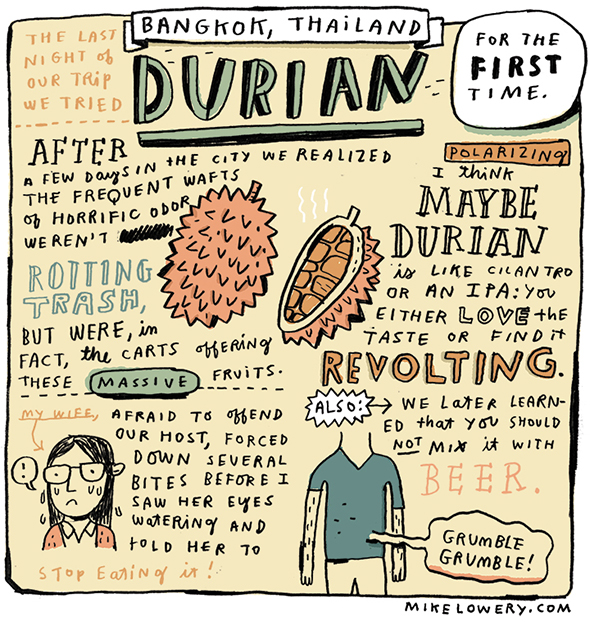 BANGKOK, THAILAND
THE LAST
NIGHT of
OUR TRIP
WE TRIED
DURIAN
FOR THE
FIRST
TIME.
AFTER
A FEW DAYS IN the CITY WE REALIZED
THE FREQUENT WAFTS
of HORRIFIC ODOR
WEREN'T
ROTTING
TRASH,
BUT WERE, in
FACT, the CARTS offERING
THESE MASSIVE FRUITS.
POLARIZING
I think
MAYBE
DURIAN
is LIKE CILANTRO
OR AN IPA: YOU
EITHER LOVE the
TASTE OR FIND it
REVOLTING.
MY WIFE, AFRAID TO offEND
OUR HOST, FORCED
DOWN SEVERAL
BITES BEFORE I
SAW HER EYES
WATERING AND
tOLD HER TO
STOP EATING it!
!
ALSO: WE LATER LEARN-
ED that YOU SHOULD
NOT MIX it WITH
BEER.
GRUMBLE
GRUMBLE!
MIKELOWERY.COM